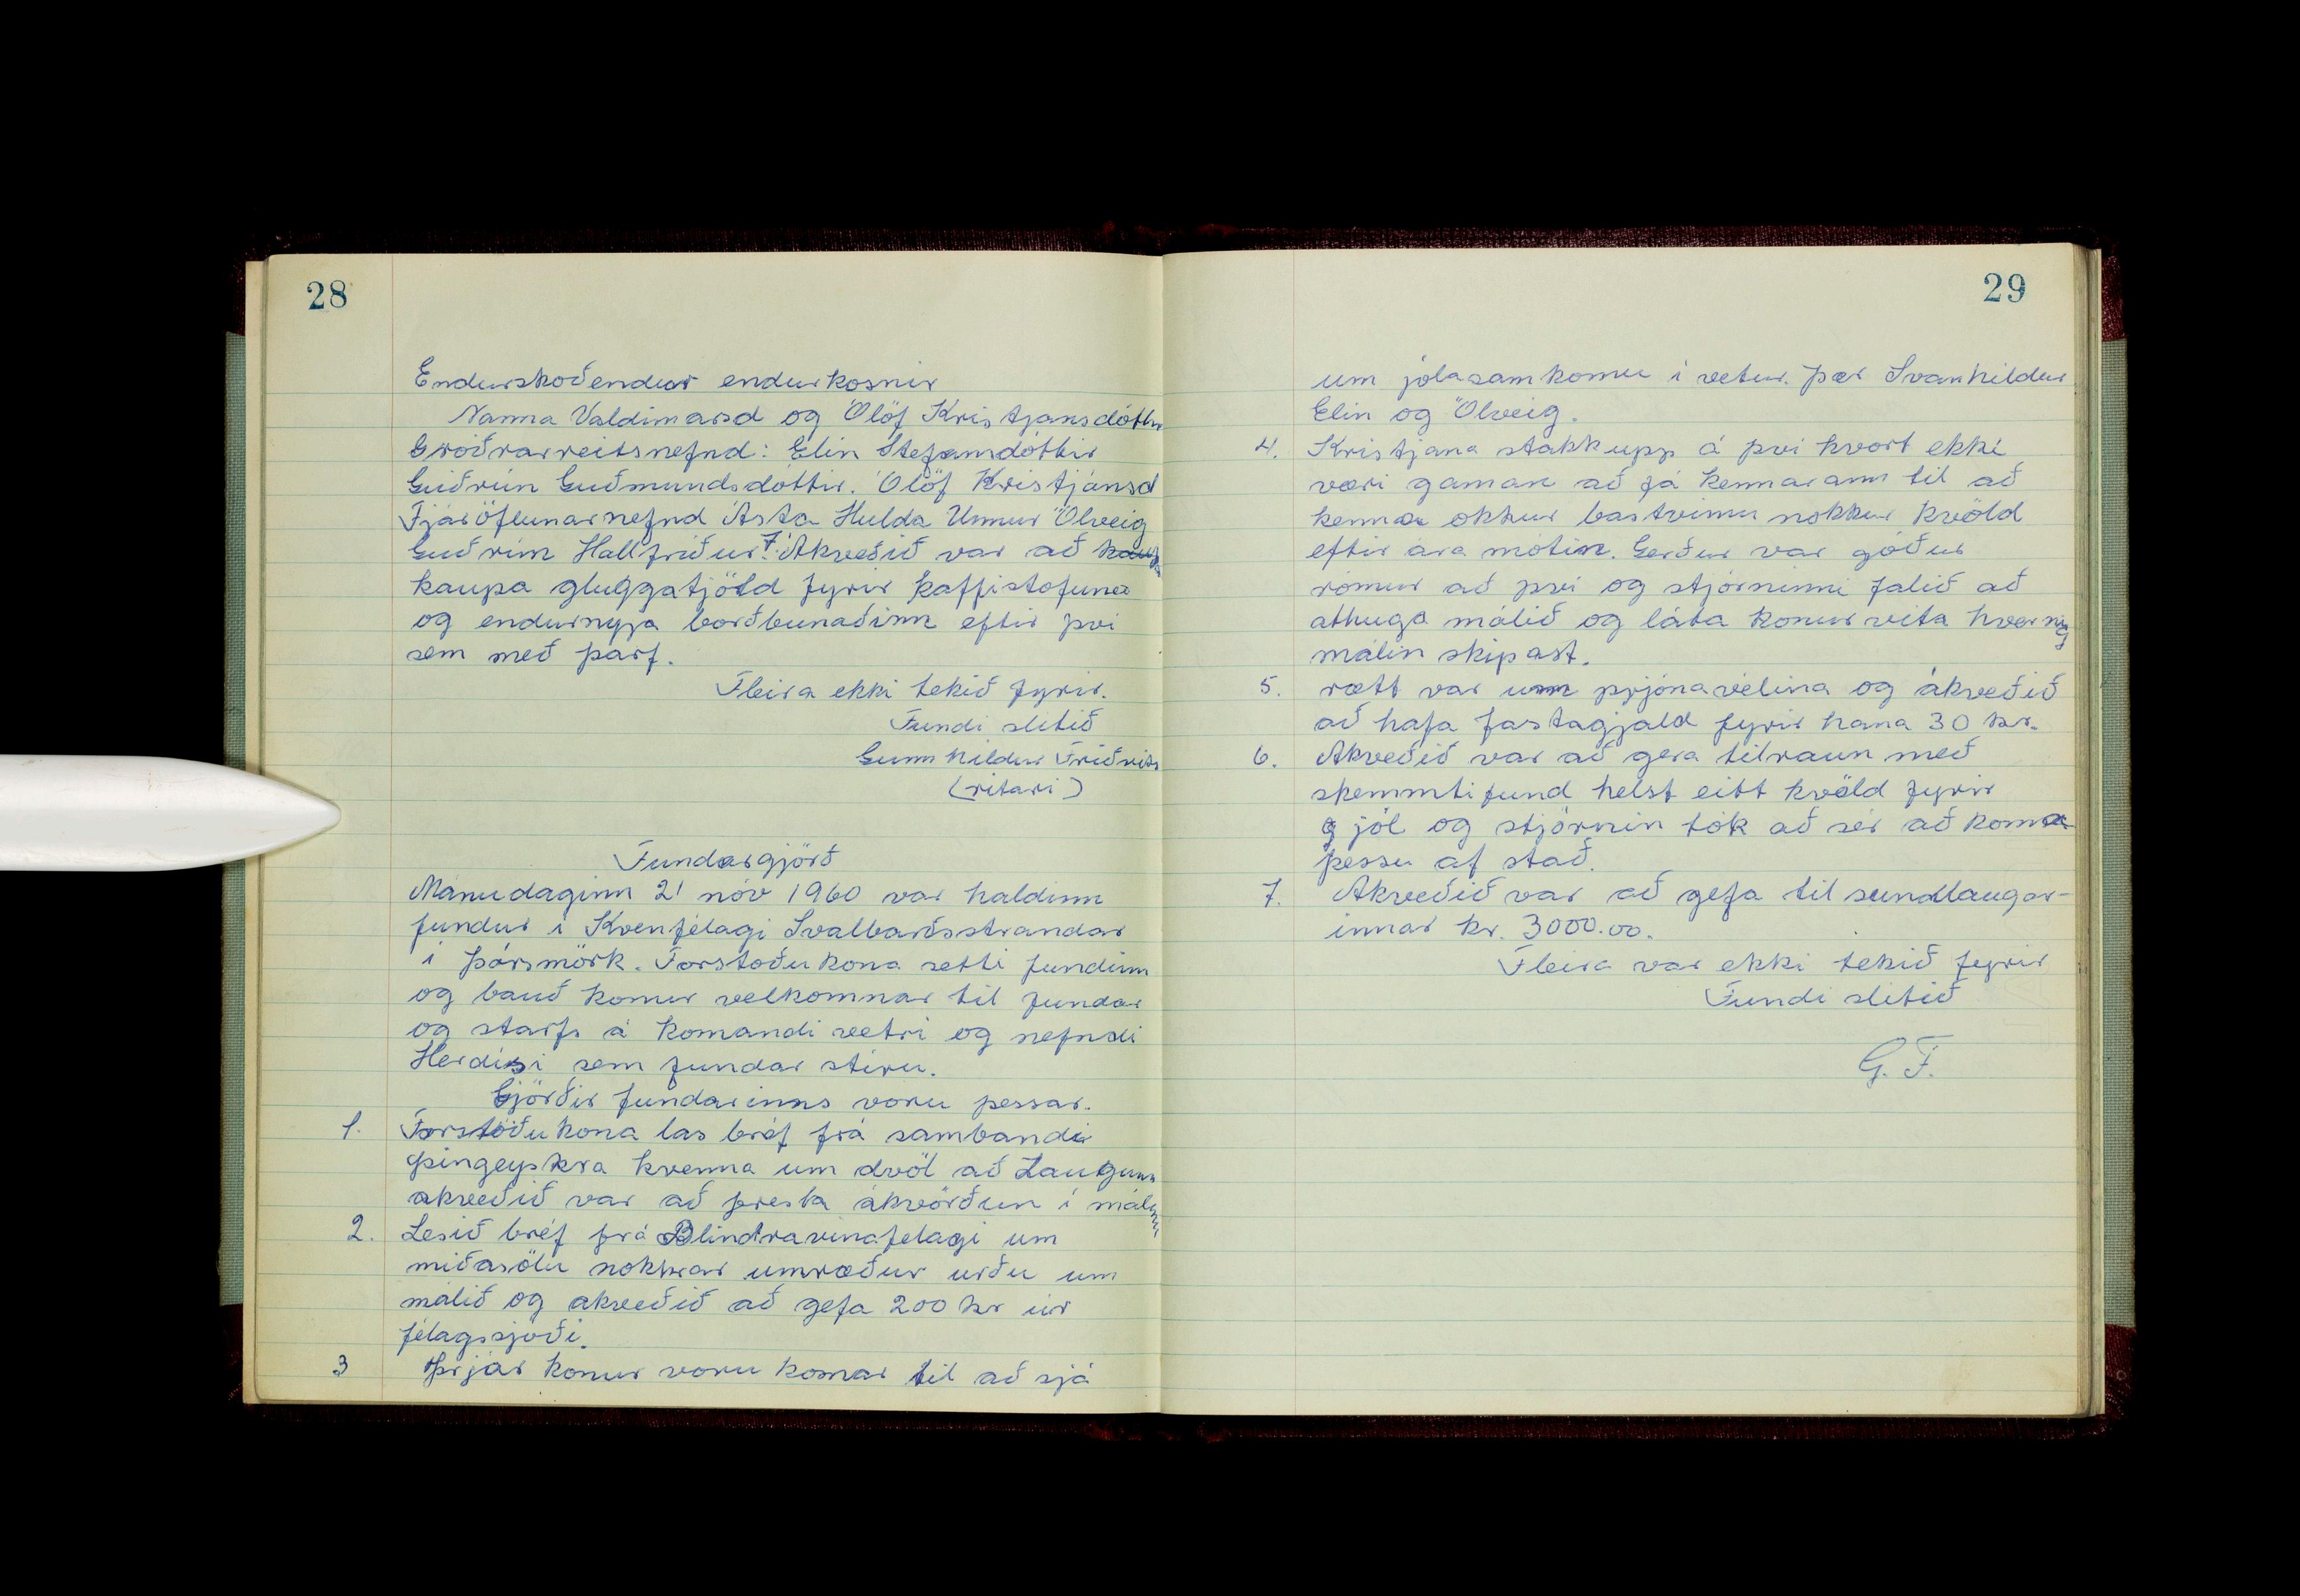 28
Endurskoðendur endurkosnir
Nanna Valdimarsd og Ólöf Kristjansdóttir
Gróðrarreitsnefnd: Elin Stefansdóttir
Guðrún Guðmundsdóttir. Ólöf Kristjánsd
Fjáröflunarnefnd Ásta Hulda Unnur Ölveig
Guðrún Hallfriður. 7. Akveðið var að kaup
kaupa gluggatjöld fyrir kaffistofuna
og endurnyja borðbunaðinn eftir þvi
sem með þarf.
Fleira ekki tekið fyrir.
Fundi slitið
Gunnhildur Friðriks
(ritari)
Fundargjörð
Mánudaginn 21 nóv 1960 var haldinn
fundur i Kvenfélagi Svalbarðsstrandar
i Þórsmörk. Forstoðukona setti fundinn
og bauð konur velkomnar til fundar
og starfs á komandi vetri og nefndi
Herdisi sem fundar stiru.
Gjörðir fundarinns voru þessar.
1. Forstöðukona las bréf frá sambandi
þingeyskra kvenna um dvöl að Laugum
akveðið var að fresta ákvörðun i málinu
2. Lesið bréf frá Blindravinafelagi um
miðasölu nokkrar umræður urðu um
málið og akveðið að gefa 200 kr úr
félagssjóði.
3 Þrjár konur voru kosnar til að sjá
29
um jólasamkomu i vetur. þær Svanhildur
Elin og Ölveig.
4. Kristjana stakk upp á þvi hvort ekki
væri gaman að fá kennarann til að
kenna okkur bastvinnu nokkur kvöld
eftir ára mótin. Gerður var góður
rómur að þvi og stjórninni falið að
athuga málið og láta konur vita hvernig
málin skipast.
5. rætt var um prjónavélina og ákveðið
að hafa fastagjald fyrir hana 30 kr.
6. Akveðið var að gera tilraun með
skemmtifund helst eitt kvöld fyrir
jól og stjórnin tók að sér að koma
þessu af stað.
7. Akveðið var að gefa til sundlaugar-
innar kr. 3000.00.
Fleira var ekki tekið fyrir
Fundi slitið
G. F.